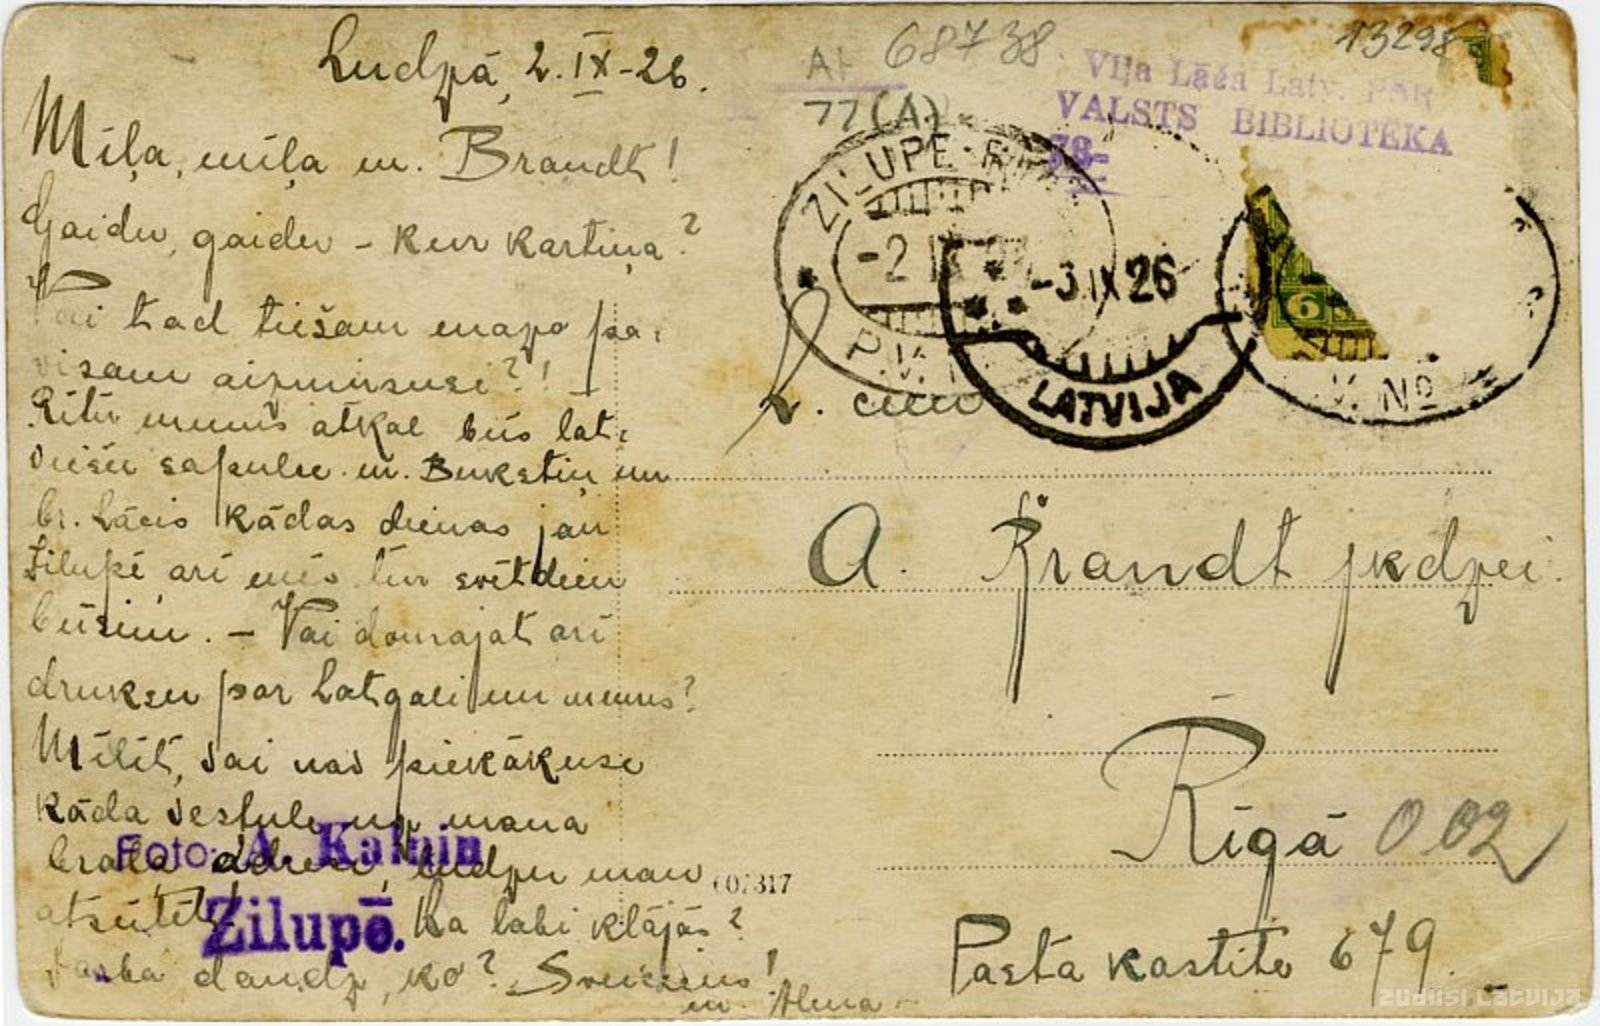 Ludzā, 2. IX-26.
Mīļa, mīļa m. Brandt!
Gaidu, gaidu - kur kartiņa?
Vai tad tiešam mazo pa-
visam aizmirsusi?! -
Rītu mums atkal būs lat-
viešu sapulce. m. Buksti un
br. Lācis kādas dienas jau
Zilupē, arī mēs tur svētdien
būsim. - Vai domajat arī
druksu par Latgali un mums?
Mīlīt, vai nav piekākuse
kāda vestule uz mana
braļa adresi, ludzu man
atsūtit! Ka labi klājās?
Darba daudz, ko? Sveiciens!
m. Alma
Foto: A. Kalnin
Zilupē.
07317
68738.
77(A)
13298
Viļa Lāča Latv. PSR
VALSTS BIBLIOTEKA
78-
ZILUPE-R
-2 IX
P.V.
-3 IX 26
LATVIJA
V. No
6
L. cien
A. Brandt jkdzei.
Rīgā 002
Pasta kastite 679.
ZUDUSI LATVIJA